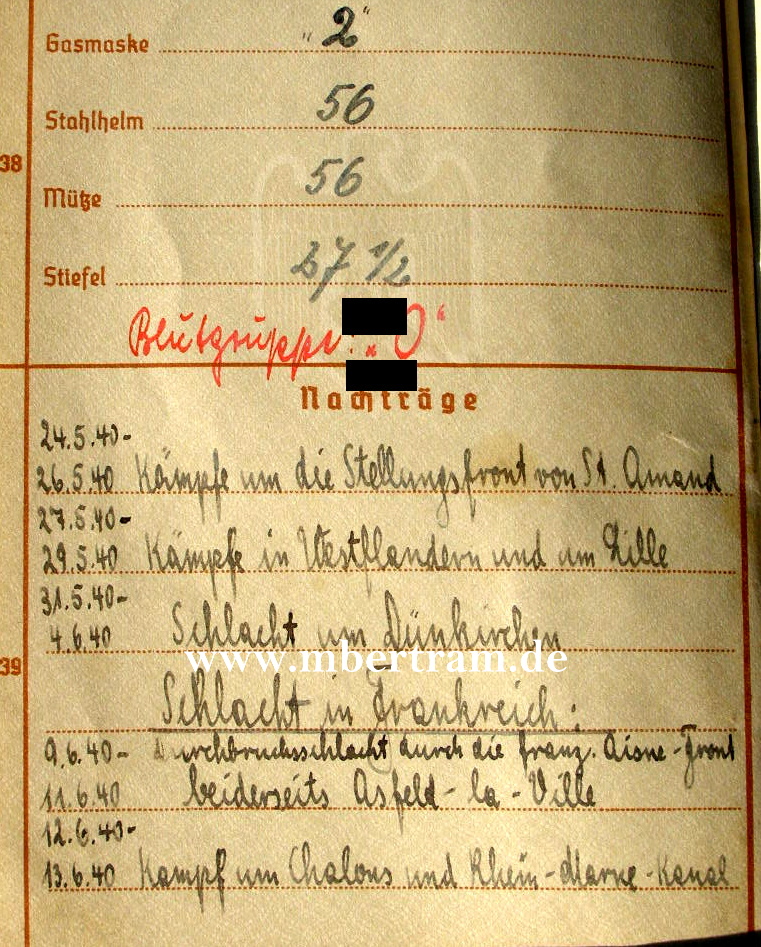 Gasmaske "2"
Stahlhelm 56
38
Mütze 56
Stiefel 27 1/2
Blutgruppe: „O“
Nachträge
24.5.40-
26.5.40 Kämpfe um die Stellungsfront von St. Amand
27.5.40-
29.5.40 Kämpfe in Westflandern und um Lille
31.5.40-
4.6.40 Schlacht um Dünkirchen
www.mbertram.de
39
Schlacht in Frankreich:
9.6.40- Durchbruchsschlacht durch die franz. Aisne-Front
11.6.40 beiderseits Asfeld-la-Ville
12.6.40-
13.6.40 Kampf um Chalons und Rhein-Marne-Kanal